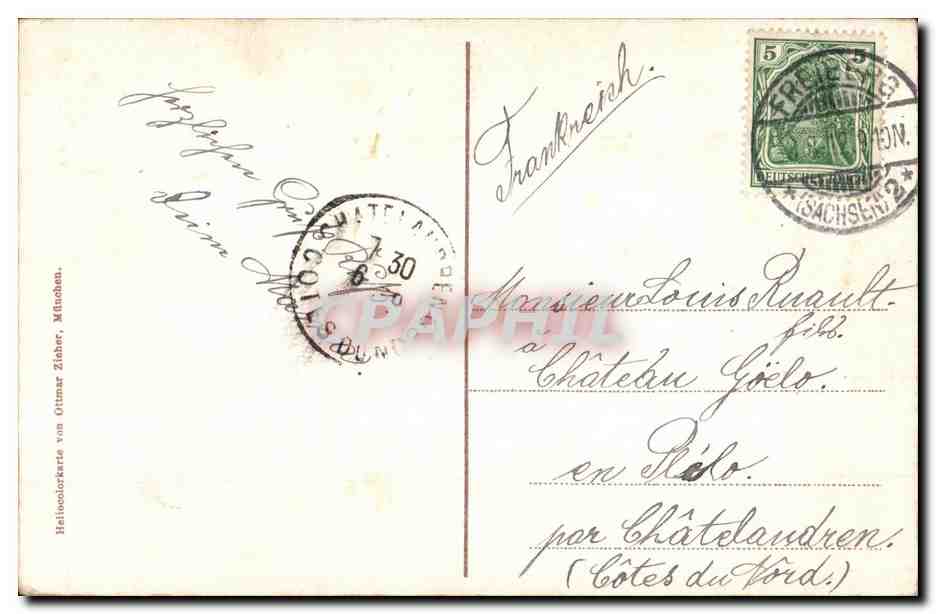 Herzlichen Gruß
Frankreich.
5 5
DEUTSCHES REICH
FREIBERG
(SACHSEN)
* 2 *
CHATELAUDREN
7 30
6
COTES DU NORD
CPAPHIL
Monsieur Louis Ruault.
fils.
à
Château Goëlo.
en Plélo.
par Châtelaudren.
(Côtes du Nord.)
Heliocolorkarte von Ottmar Zieher, München.